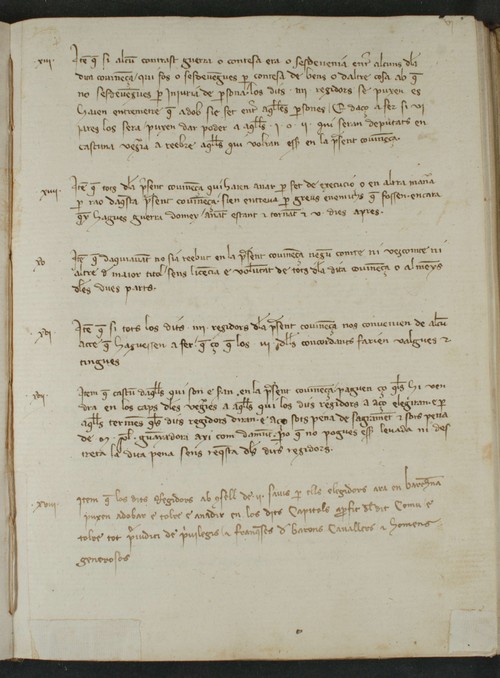 xiii Itē q̄ si alcū contrast guerra o contesa era o sesdevenia entr̄ alcuns dla
dita covinēça, qui fos o sesdevengues p̄ contesa de bens o daltre cosa ab q̄
no sesdevēgues p̄ injuria de p̄sona, los dits iiii regidors se puxen es
hajen entremetre q̄ adob sie fet entr̄ aqlles p̄sones, E daço a fer si vi
pares los sera puxen dar poder a aqlls i o ii qui seran deputats en
cascuna vegᵃia a reebre aqlls qui volran esser en la p̄sent covinēça.
xiiii Itē q̄ tots dla p̄sent covinēça qui hajen anar p̄ fet de execucio o en altra manᵃ
p̄ rao daq̄sta p̄sent covinēça, sien entreva p̄ greus enemichs q̄ fossen, encara
q̄ hagues guerra domey, anāt estant e tornāt e v dies apres.
xv Itē q̄ daquiavāt no sia reebut en la p̄sent covinēça negū comte ni vescomte ni
altre d maior titol sens licēcia e volūtat de tots dla dita covinēça o almēys
dles dues parts.
xvi Itē q̄ si tots los dits iiii regidors dla p̄sent covinēça nos convenien de alcū
acte q̄ haguessen a fer q̄ ço q̄ los iii dlls concordants farien valgues e
tingues
xvii Item q̄ cascū daqlls qui son e seran en la p̄sent covinēça, paguen ço q̄ls hi ven
dra en los caps dles vegᵃies a aqlls qui los dits regidors a aço elegirā e p̄
aqlls termes q̄ls dits regidors diran, e aço sots pena de sagramēt e sots pena
de guaradora axi com damūt, p̄o q̄ no pogues esser levada ni des
treta la dita pena sens reqsta dls dits regidors.
xviii Item q̄ los dits Regidors ab cōsell de vi savis p̄ elle elegidors ara en barchna
puxen adobar e tolre e anadir en los dits Capitols a p̄fit del dit Comu e
tolre tot p̄judici de p̄vilegis e franqueses d Barons Cavallers e homens
generosos